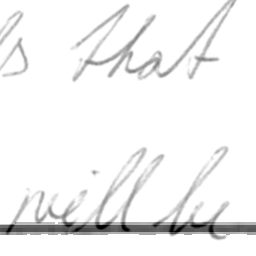 s that
will be